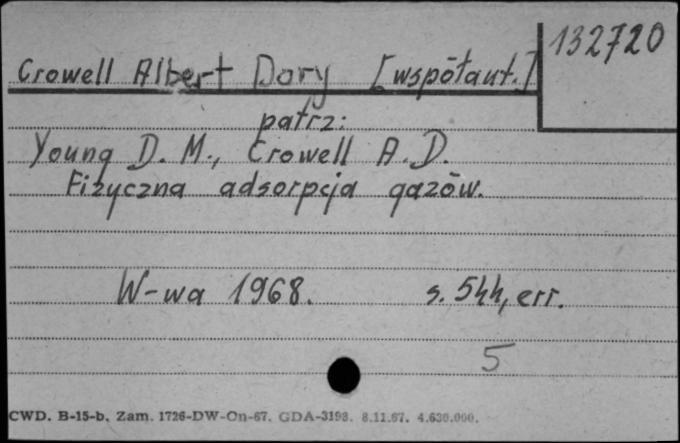 132720
Crowell Albert Dory [współaut.]
patrz:
Young D. M., Crowell A. D.
Fizyczna adsorpcja gazów.
W-wa 1968. s. 544, err.
5
CWD. B-15-b. Zam. 1726-DW-On-67. GDA-3198. 8.11.67. 4.630.000.